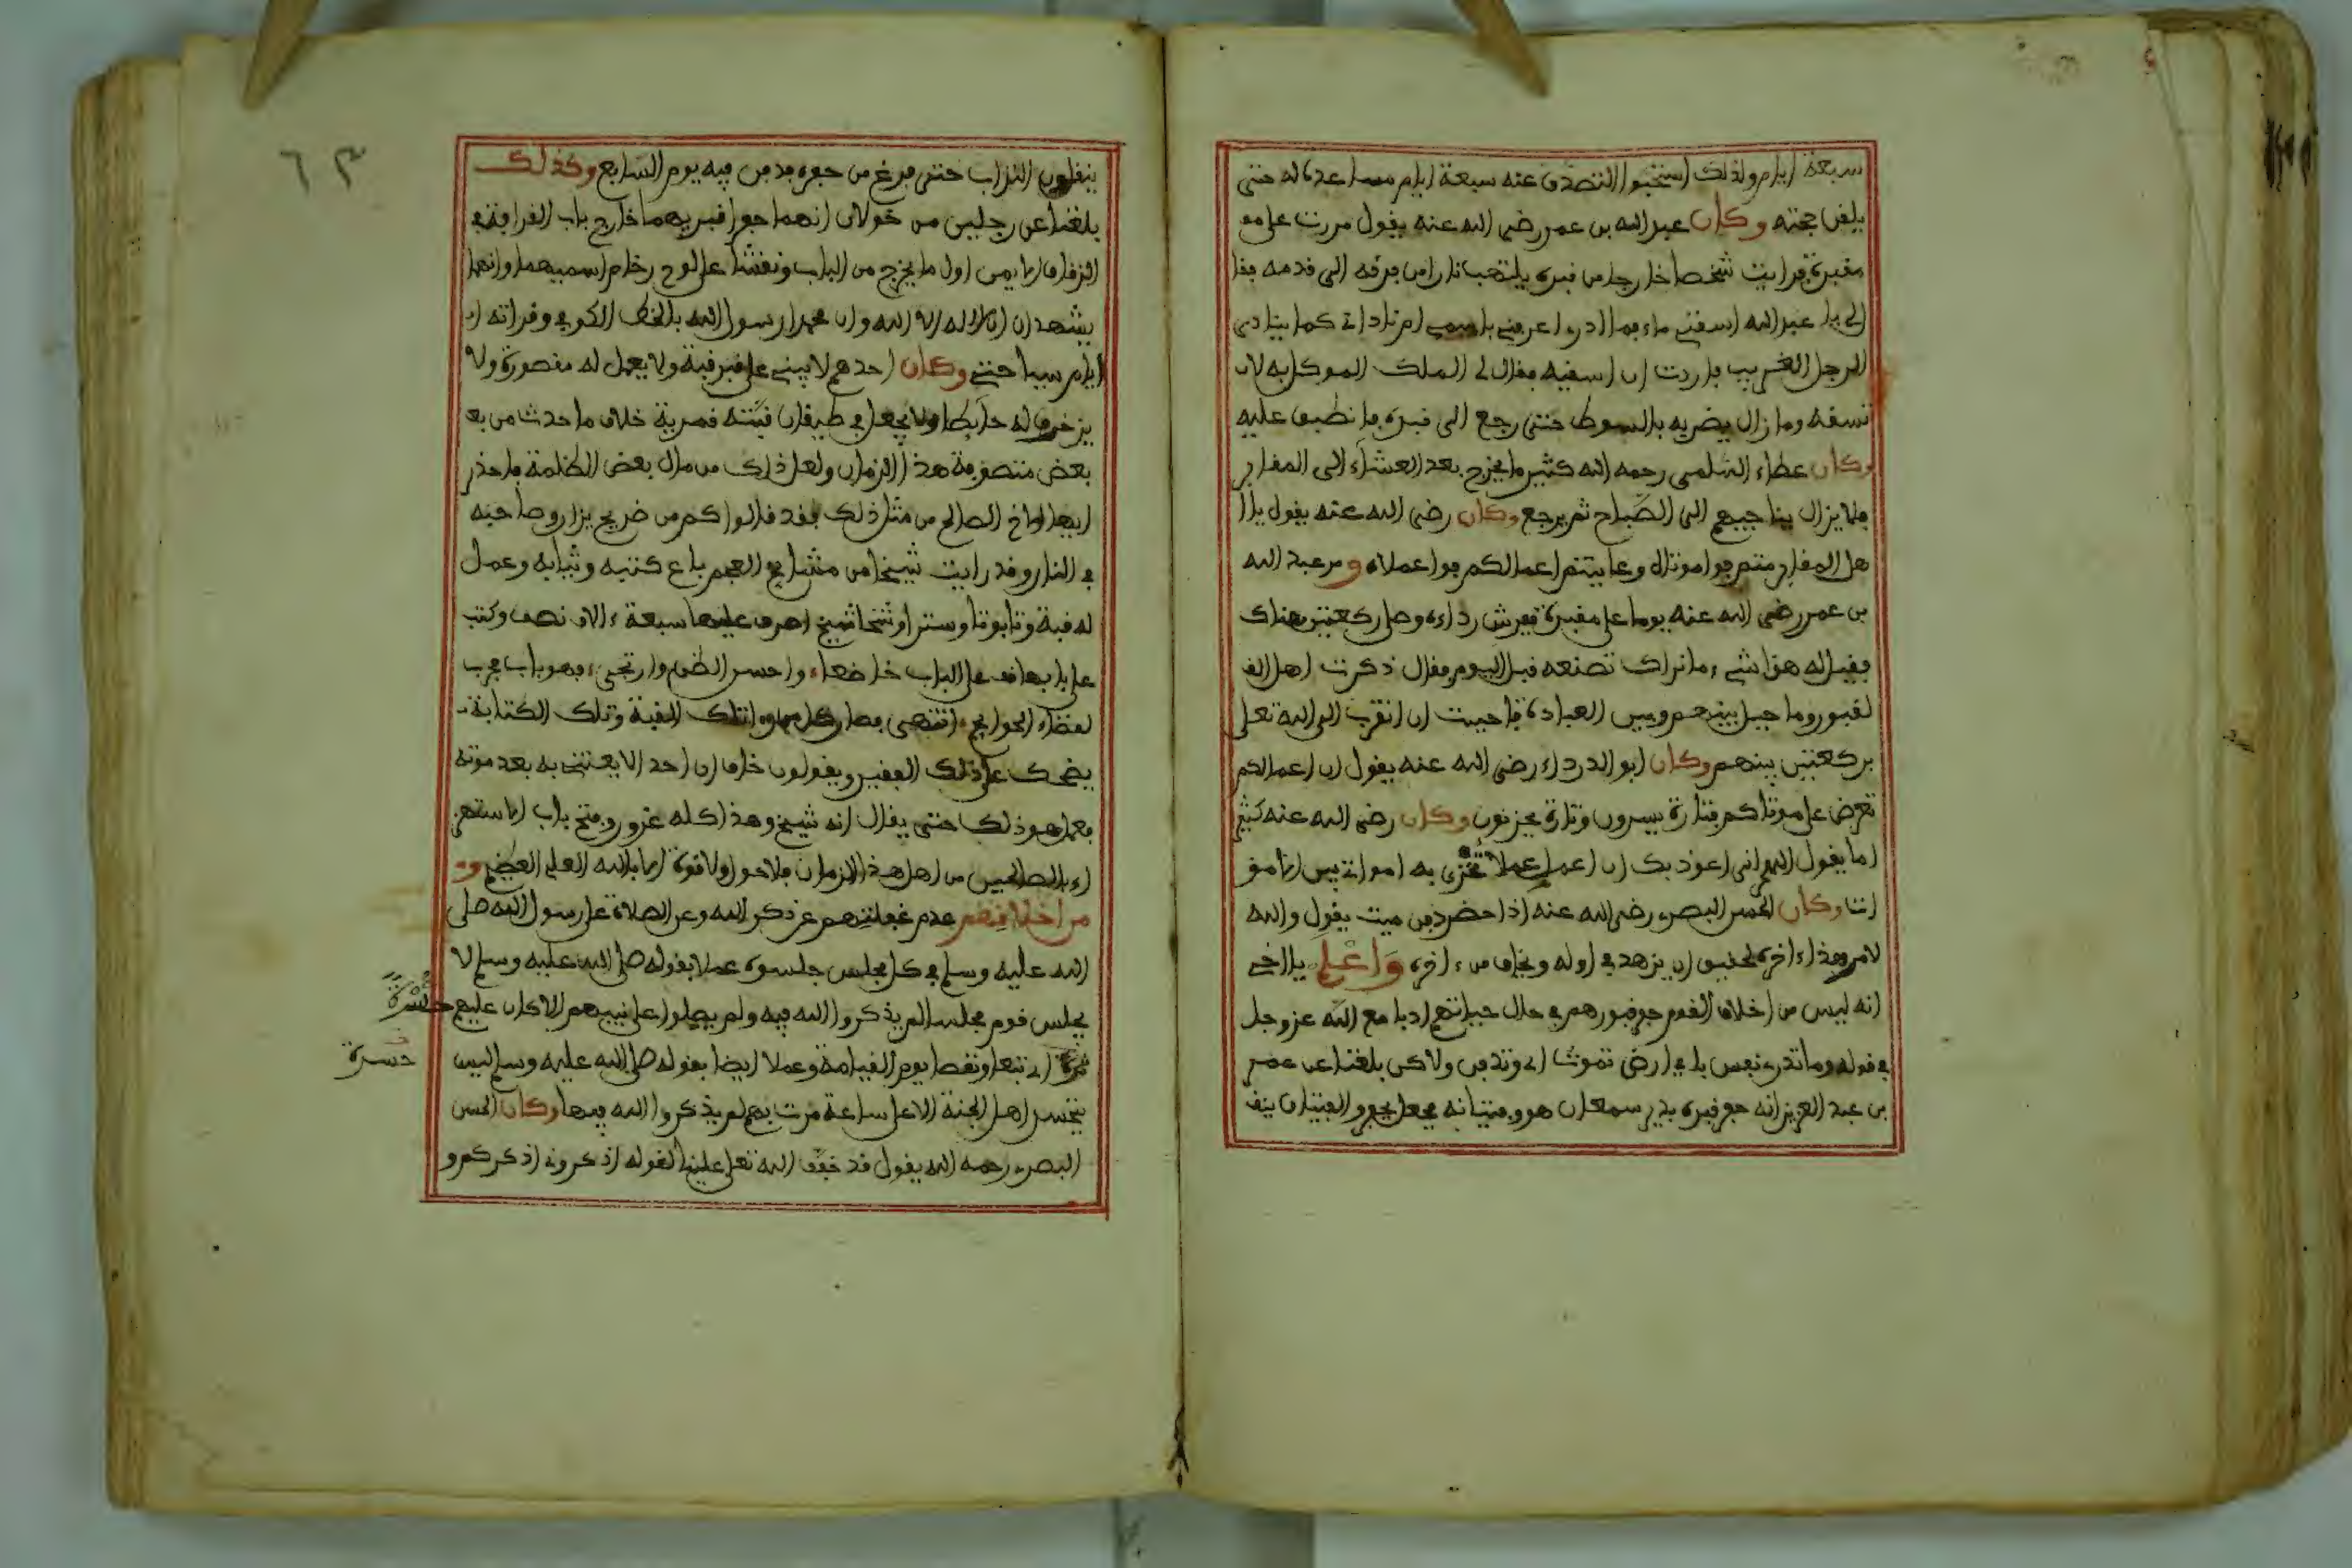 سبعة ايام ولذلك استحبوا التصدق عنه سبعة ايام مساعدة له حتى
يلقن حجته وكان عبد الله بن عمر رضي الله عنه يقول مررت على مو
مقبرة فرايت شخصا خارجا من قبره يلتهب نارا من فرقه الى قدمه فقا
لي يا عبد الله اسقني ماء فما ادرى اعرفني باسمي ام ناداني كما ينادى
الرجل الغريب فاردت ان اسقيه فقال لي الملك الموكل به لا
تسقه وما زال يضربه بالسوط حتى رجع الى قبره فانطبق عليه
وكان عطاء السلمى رحمه الله كثير ما يخرج بعد العشاء الى المقابر
فلا يزال يناجيهم الى الصباح ثم يرجع وكان رضي الله عنه يقول يا ا
هل المقابر متم فوا موتاه وعاينتم اعمالكم فوا عملاه ومر عبد الله
بن عمر رضي الله عنه يوما على مقبرة ففرش رداءه وصلى ركعتين هناك
فقيل له هذا شيء ما نراك تصنعه قبل اليوم فقال ذكرت اهل الق
لقبور وما حيل بينهم وبين العبادة فاحببت ان اتقرب الى الله تعلى
بركعتين بينهم وكان ابو الدرداء رضي الله عنه يقول ان اعمالكم
تعرض على موتاكم فتارة يسرون وتارة يحزنون وكان رضي الله عنه كثير
اما يقول اللهم اني اعوذ بك ان اعمل عملا تخزى به امواتي بين الامو
ات وكان الحسن البصرى رضي الله عنه اذا حضر دفن ميت يقول والله
لامر هذا ءاخره لحقيق ان يزهد في اوله ويخاف من ءاخره واعلم يا اخي
انه ليس من اخلاق القوم حفر قبورهم في حال حياتهم ادبا مع الله عز وجل
في قوله وما تدرى نفس باي ارض تموت اي وتدفن ولاكن بلغنا عن عمر
بن عبد العزيز انه حفر قبره بدير سمعان هو وفتيانه فجعل يحفر والفتيان ينق
ينقلون التراب حتى فرغ من حفره فدفن فيه يوم السابع وكذلك
بلغنا عن رجلين من خولان انهما حفرا قبريهما خارج باب القرافة في
الزقاق الايمن اول ما يخرج من الباب ونقشا على لوح رخام اسميهما وانهما
يشهدان ان لا اله الا الله وان محمدا رسول الله بالخط الكوفي وقراته ا
ايام سياحتي وكان احدهم لا يبني على قبر قبة ولا يعمل له مقصورة ولا
يزخرف له حائطا ولا يجعل في طيقان قبته قمرية خلاف ما حدث من بع
بعض متصوفة هذا الزمان ولعل ذلك من مال بعض الظلمة فاحذر
ايها الاخ الصالح من مثل ذلك فقد قالوا كم من ضريح يزار وصاحبه
في النار وقد رايت شيخا من مشايخ العجم باع كتبه وثيابه وعمل
له قبة وتابوتا وسترا وشخاشيخ اصرف عليها سبعة ءالاف نصف وكتب
على بابها قف على الباب خاضعا واحسن الظن وارتجي فهو باب مجرب
لقضاء الحوايج انتهى فصار كل من رءا تلك القبة وتلك الكتابة
يضحك على ذلك الفقير ويقولون خاف ان احدا لا يعتني به بعد موته
فعمل هو ذلك حتى يقال انه شيخ وهذا كله غرور وفتح باب الاستهز
اء بالصالحين من اهل هذا الزمان فلا حول ولا قوة الا بالله العلي العظيم و
من اخلاقهم عدم غفلتهم عن ذكر الله وعن الصلاة على رسول الله صلى
الله عليه وسلم في كل مجلس جلسوه عملا بقوله صلى الله عليه وسلم لا
يجلس قوم مجلسا لم يذكروا الله فيه ولم يصلوا على نبيهم الا كان عليهم حسرة
ترة اي تبعا ونقصا يوم القيامة وعملا ايضا بقوله صلى الله عليه وسلم ليس
حسرة
يتحسر اهل الجنة الا على ساعة مرت بهم لم يذكروا الله فيها وكان الحسن
البصرى رحمه الله يقول قد خفف الله تعلى علينا لقوله اذكروني اذكركم و
٦٣